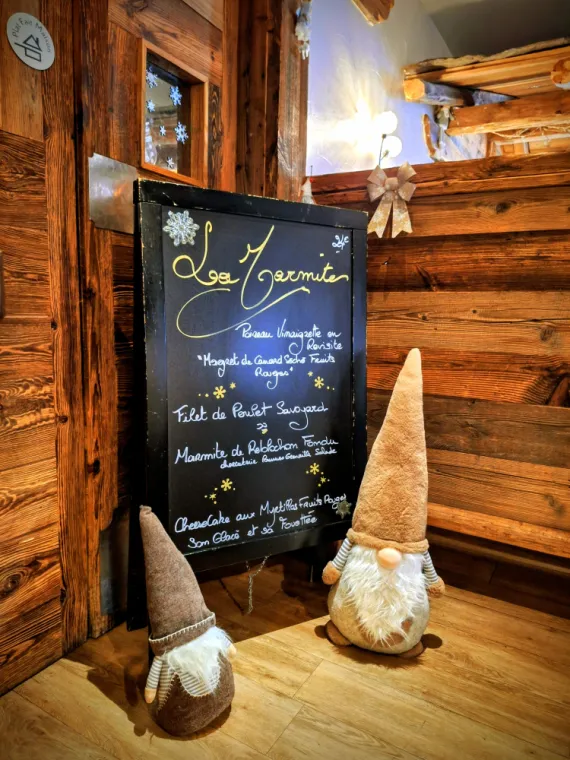 Fait Maison
La Marmite
Poireau Vinaigrette en
Revisite
"Magret de Canard Seché Fruits
Rouges"
Filet de Poulet Savoyard
Marmite de Reblochon Fondu
charcuterie Pommes Grenaille Salade
CheeseCake aux Myrtilles Fruits Rouges
Son Glacé et sa Fouettée